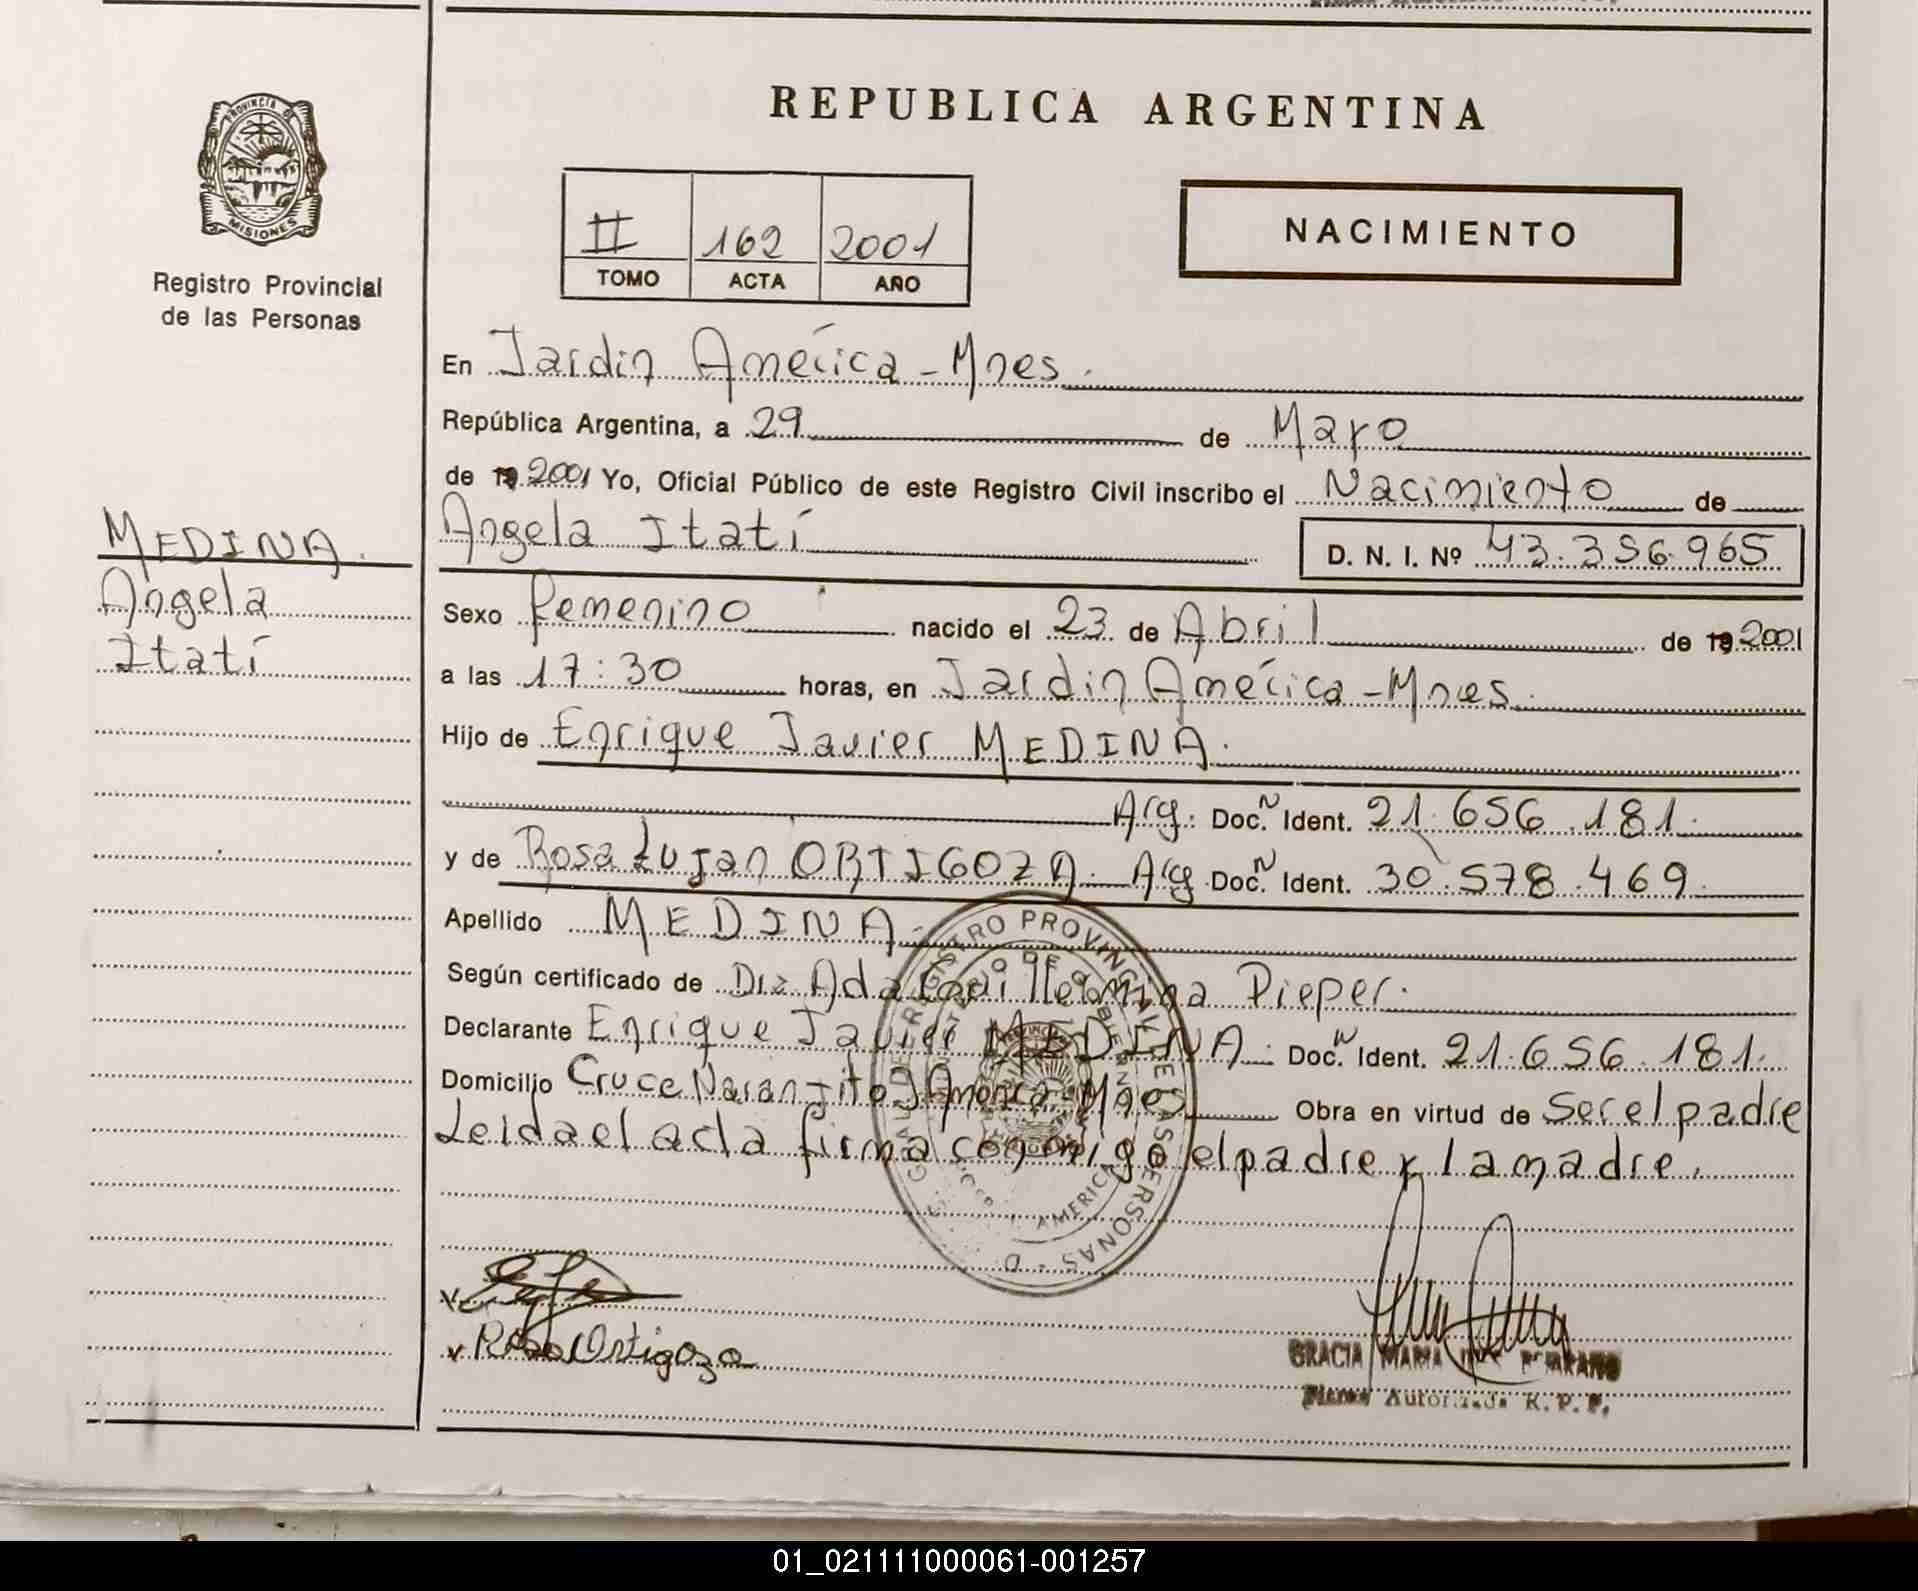 PROVINCIA DE
MISIONES
Registro Provincial
de las Personas
MEDINA.
Angela
Itatí
REPUBLICA ARGENTINA
II 162 2001
TOMO ACTA AÑO
NACIMIENTO
En Jardin América - Mnes.
República Argentina, a 29 de Mayo
de 19 2001 Yo, Oficial Público de este Registro Civil inscribo el Nacimiento de
Angela Itatí D. N. I. Nº 43.356.965
Sexo femenino nacido el 23 de Abril de 19 2001
a las 17:30 horas, en Jardin América - Mnes.
Hijo de Enrique Javier MEDINA.
Arg. Doc. N Ident. 21.656.181.
y de Rosa Lujan ORTIGOZA. Arg Doc. N Ident. 30.578.469.
Apellido MEDINA.
Según certificado de Dra Ada Guillermina Pieper.
Declarante Enrique Javier MEDINA. Doc. N Ident. 21.656.181.
Domicilio Cruce Naranjito J. América - Mnes Obra en virtud de Ser el padre
Leida el acta firma conmigo el padre y la madre.
REGISTRO PROVINCIAL DE LAS PERSONAS
AMERICA
v
v Rosa Ortigoza
GRACIA MARIA
Firma Autorizada R. P. P.
01_021111000061-001257